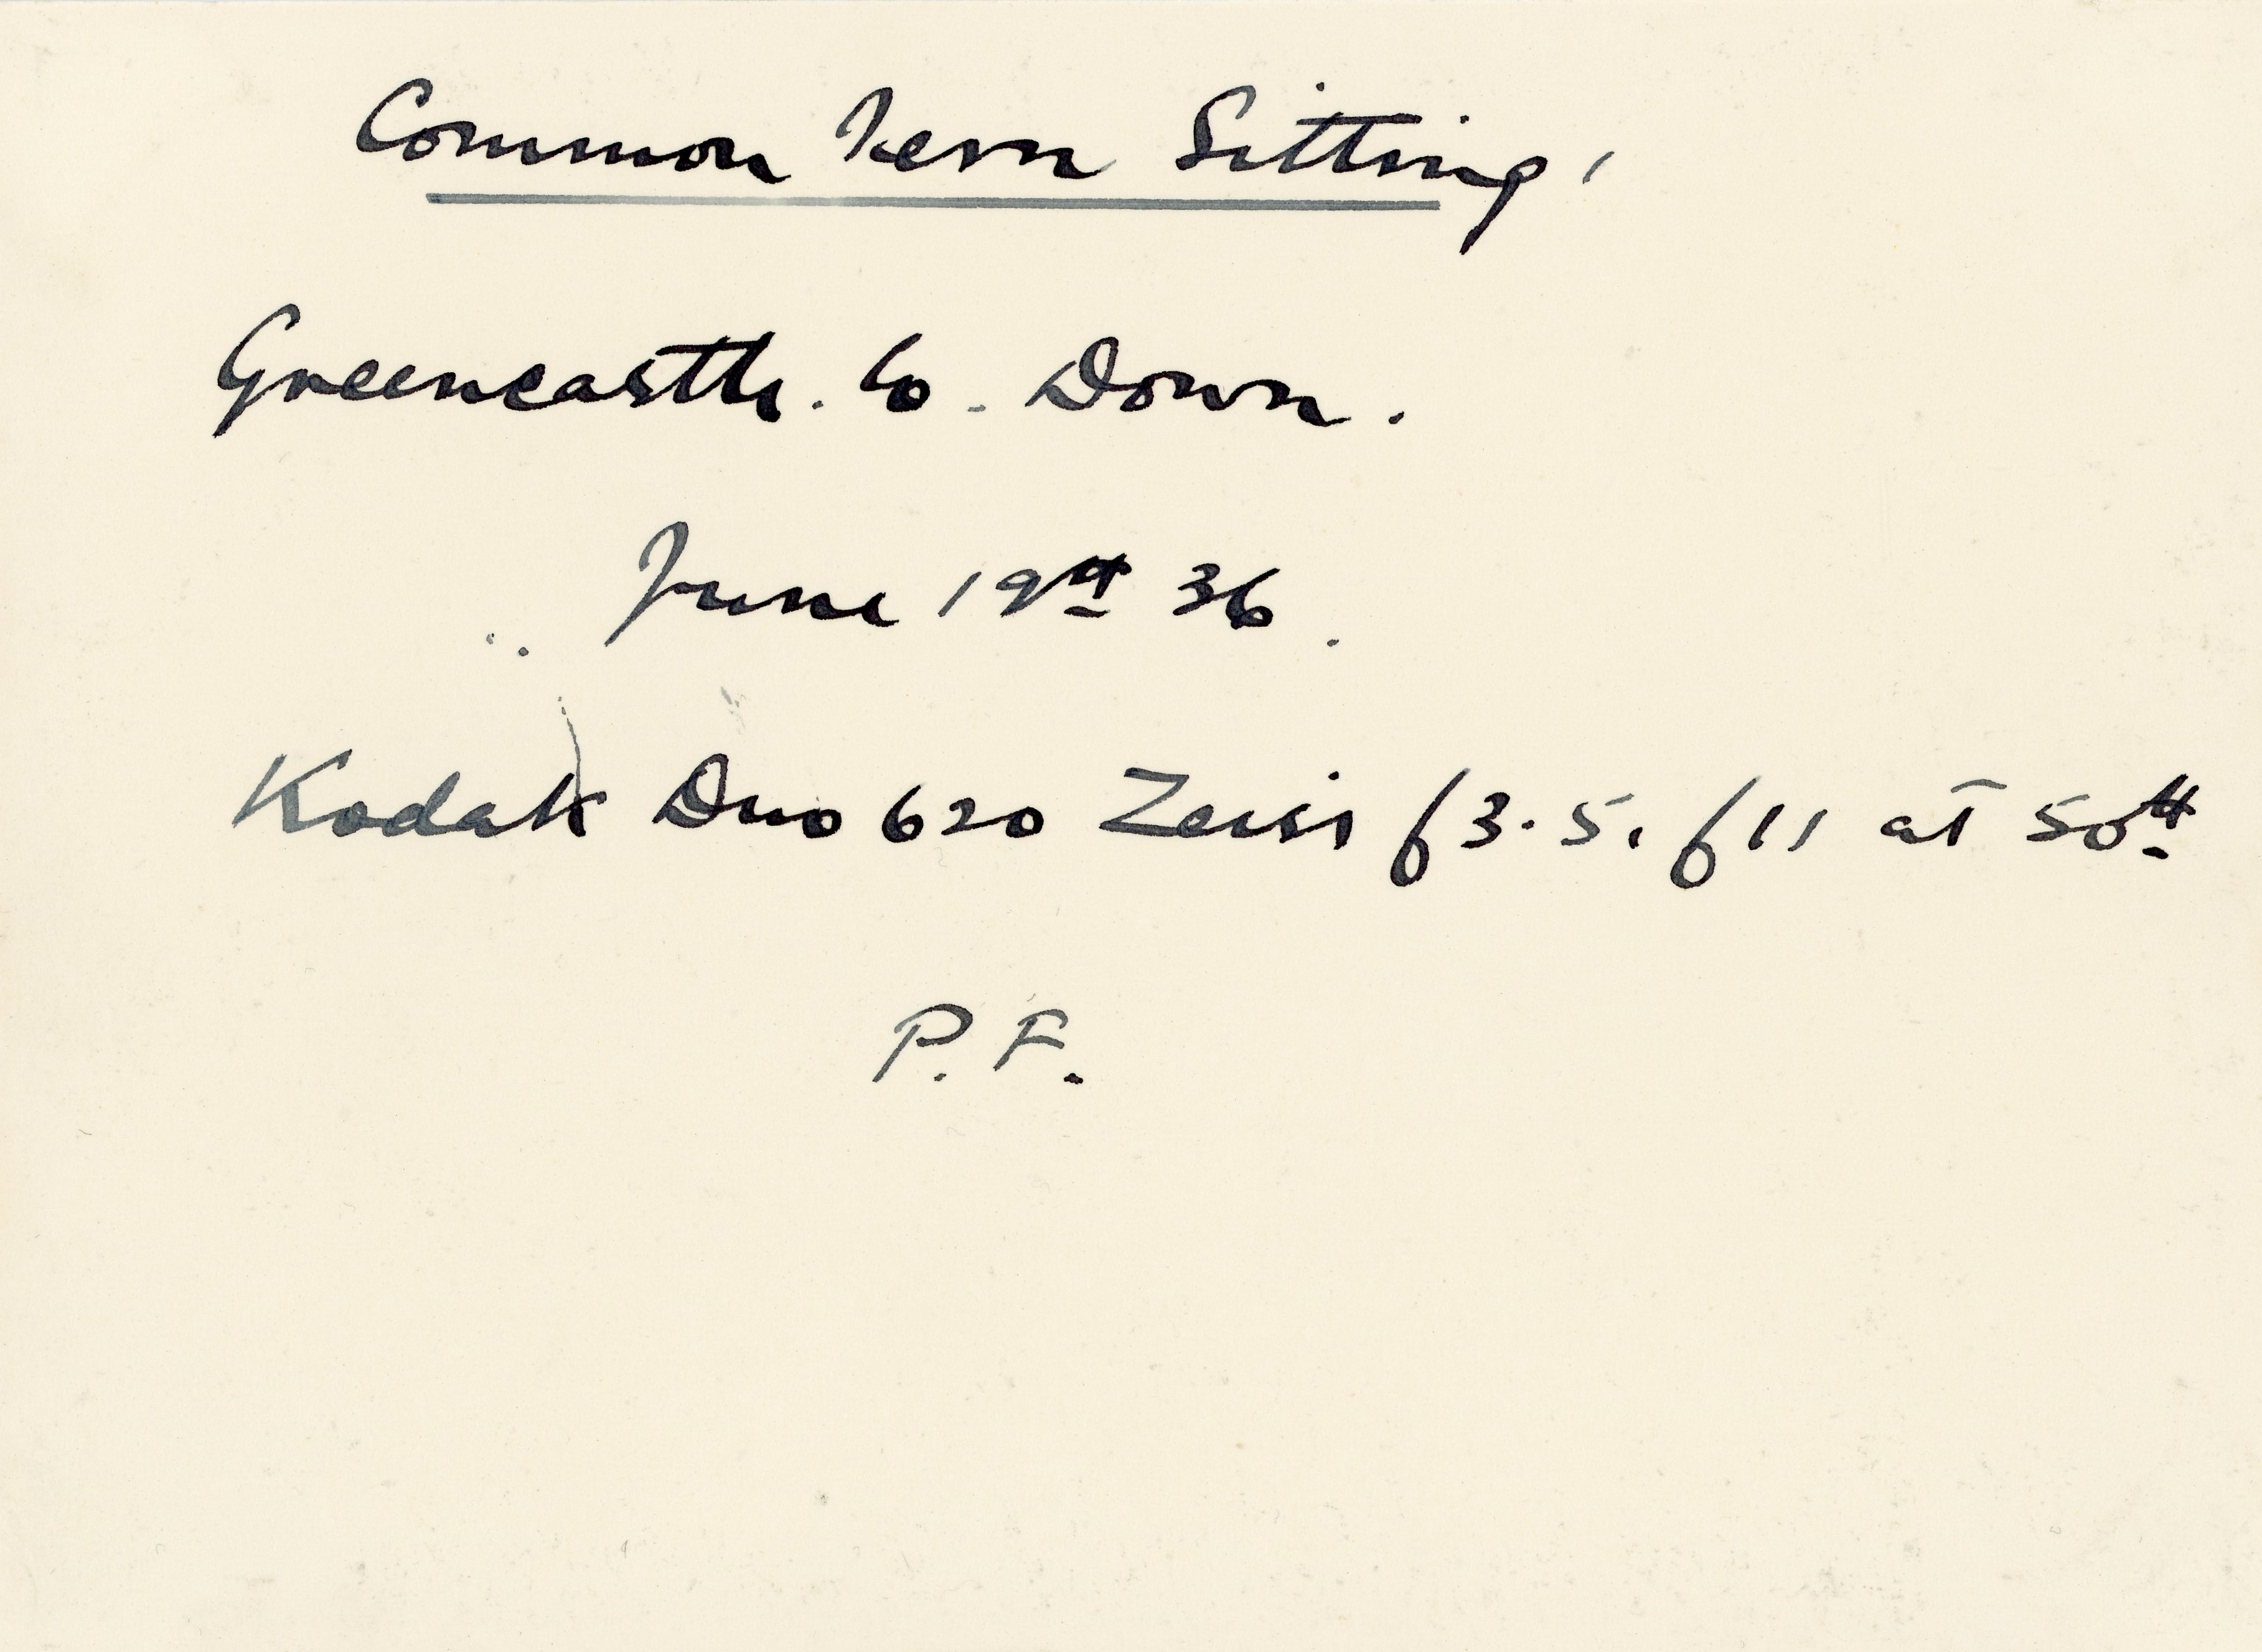 Common Tern Sitting,
Greencastle. Co. Down.
June 19th 36.
Kodak Duo 620 Zeiss f3.5. f11 at 50th
P. F.